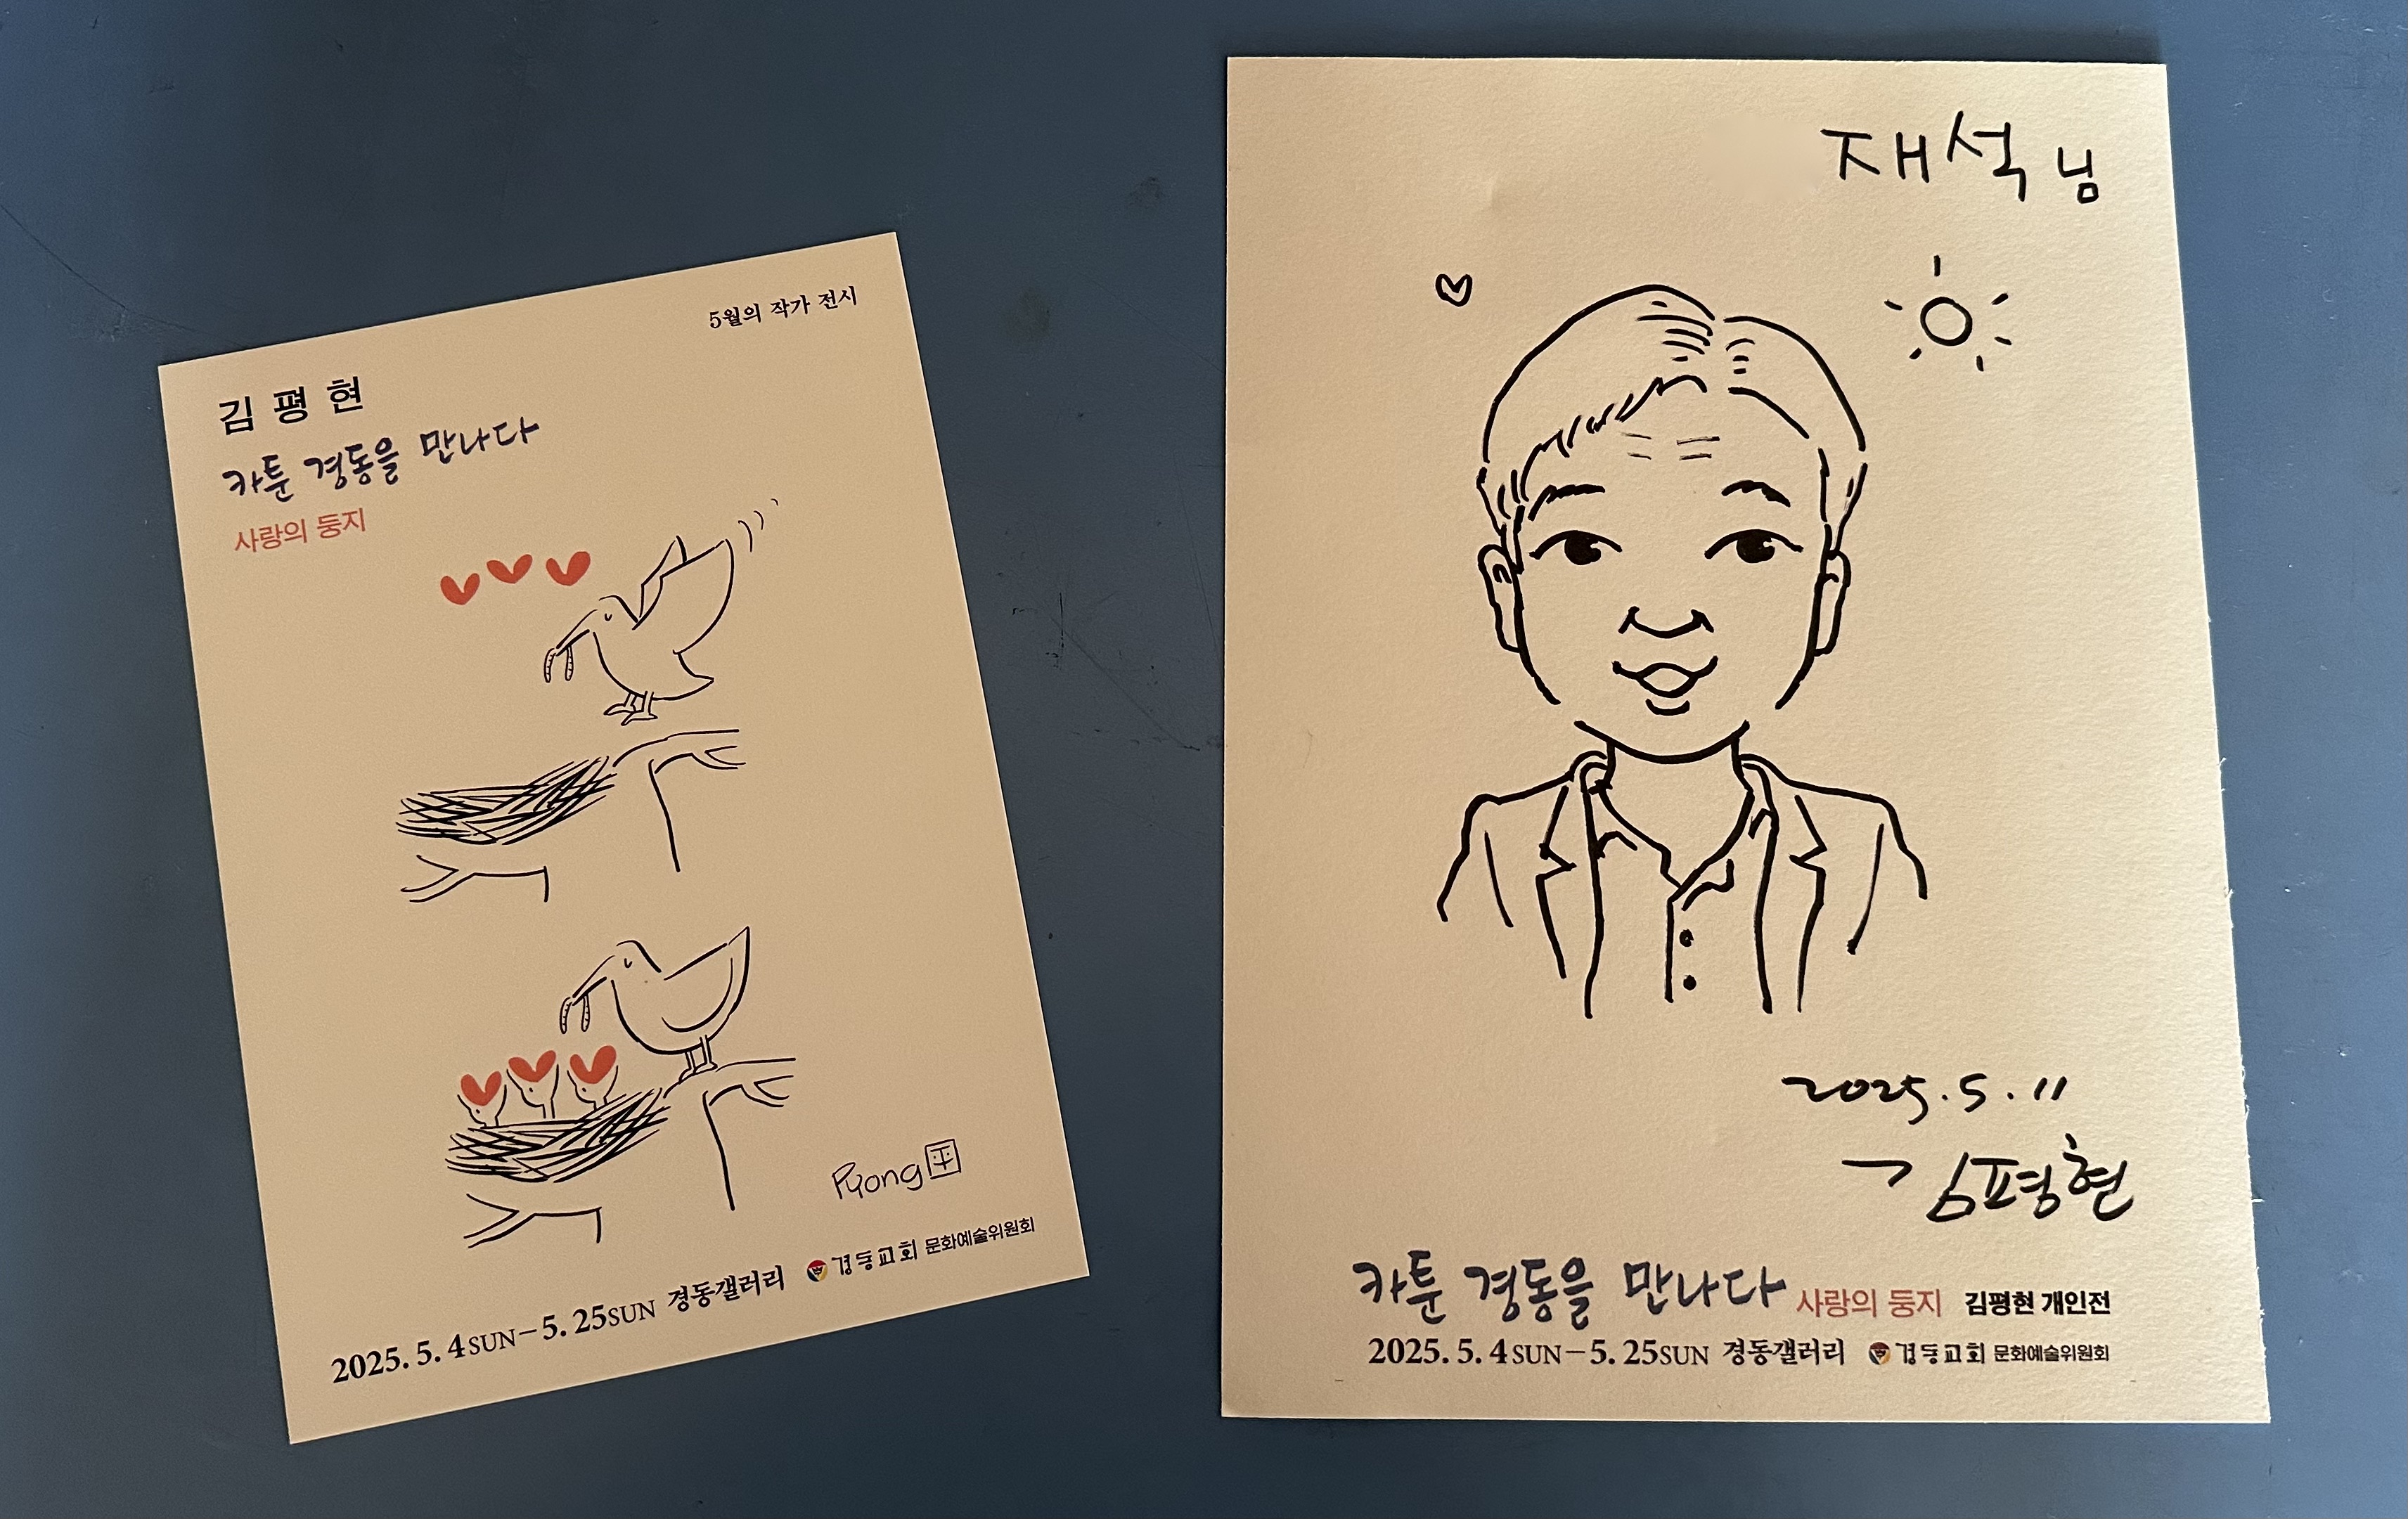 5월의 작가 전시
김평현
카툰 경동을 만나다
사랑의 둥지
Pyong 平
2025. 5. 4 SUN – 5. 25 SUN 경동갤러리 경동교회 문화예술위원회
재석 님
2025. 5. 11
김평현
카툰 경동을 만나다 사랑의 둥지 김평현 개인전
2025. 5. 4 SUN – 5. 25 SUN 경동갤러리 경동교회 문화예술위원회